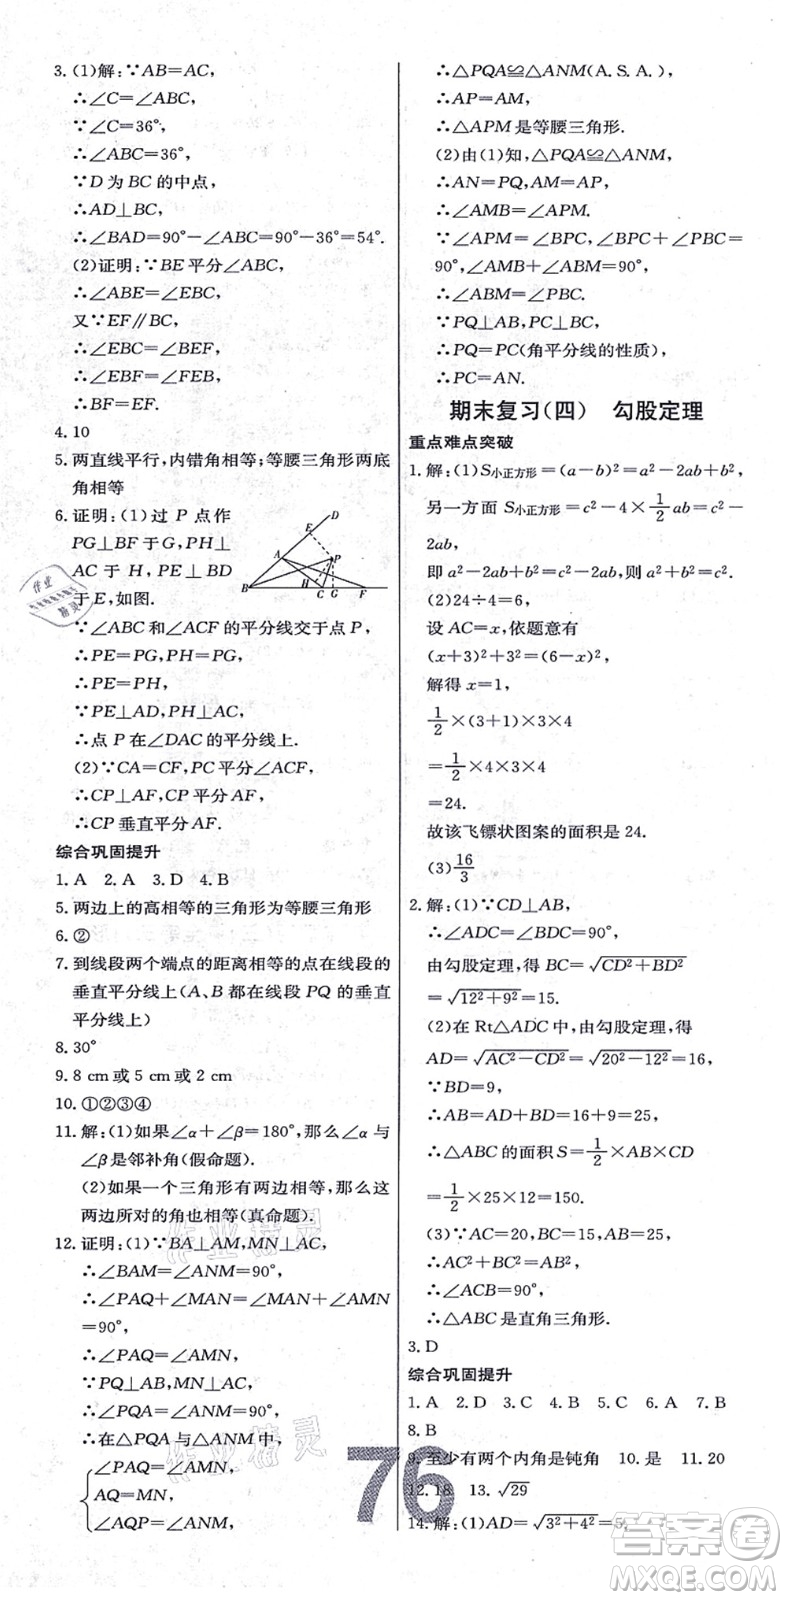 3. (1)解:∵AB=AC,
∴∠C=∠ABC,
∵∠C=36°,
∴∠ABC=36°,
∵D 为 BC 的中点,
∴AD⊥BC,
∴∠BAD=90°-∠ABC=90°-36°=54°.
(2)证明:∵BE平分∠ABC,
∴∠ABE=∠EBC,
又∵EF∥BC,
∴∠EBC=∠BEF,
∴∠EBF=∠FEB,
∴BF=EF.
4. 10
5. 两直线平行,内错角相等;等腰三角形两底
角相等
6. 证明:(1)过 P 点作
PG⊥BF于G,PH⊥
AC 于 H,PE⊥BD
于E,如图.
D
E
A
P
B
H
C
G
F
∵∠ABC 和∠ACF 的平分线交于点 P,
∴PE=PG,PH=PG,
∴PE=PH,
∵PE⊥AD,PH⊥AC,
∴点 P 在∠DAC 的平分线上.
(2)∵CA=CF,PC平分∠ACF,
∴CP⊥AF,CP 平分 AF,
∴CP垂直平分AF.
综合巩固提升
1. A 2. A 3. D 4. B
5. 两边上的高相等的三角形为等腰三角形
6. ②
7. 到线段两个端点的距离相等的点在线段的
垂直平分线上(A、B 都在线段 PQ 的垂直
平分线上)
8. 30°
9. 8 cm 或 5 cm 或 2 cm
10. ①②③④
11. 解:(1)如果∠α+∠β=180°,那么∠α 与
∠β是邻补角(假命题).
(2)如果一个三角形有两边相等,那么这
两边所对的角也相等(真命题).
12. 证明:(1)∵BA⊥AM,MN⊥AC,
∴∠BAM=∠ANM=90°,
∴∠PAQ+∠MAN=∠MAN+∠AMN
=90°,
∴∠PAQ=∠AMN,
∵PQ⊥AB,MN⊥AC,
∴∠PQA=∠ANM=90°,
∴在△PQA与△ANM中,
∠PAQ=∠AMN,
AQ=MN,
∠AQP=∠ANM,
∴△PQA≌△ANM(A.S.A.),
∴AP=AM,
∴△APM 是等腰三角形.
(2)由(1)知,△PQA≌△ANM,
∴AN=PQ,AM=AP,
∴∠AMB=∠APM.
∵∠APM=∠BPC,∠BPC+∠PBC=
90°,∠AMB+∠ABM=90°,
∴∠ABM=∠PBC.
∵PQ⊥AB,PC⊥BC,
∴PQ=PC(角平分线的性质),
∴PC=AN.
期末复习(四) 勾股定理
重点难点突破
1. 解:(1)S小正方形=(a-b)²=a²-2ab+b²,
另一方面 S小正方形=c²-4×1/2 ab=c²-
2ab,
即 a²-2ab+b²=c²-2ab,则 a²+b²=c².
(2)24÷4=6,
设 AC=x,依题意有
(x+3)²+3²=(6-x)²,
解得 x=1,
1/2×(3+1)×3×4
=1/2×4×3×4
=24.
故该飞镖状图案的面积是 24.
(3)16/3
2. 解:(1)∵CD⊥AB,
∴∠ADC=∠BDC=90°,
由勾股定理,得 BC=√(CD²+BD²)
=√(12²+9²)=15.
(2)在 Rt△ADC 中,由勾股定理,得
AD=√(AC²-CD²)=√(20²-12²)=16,
∵BD=9,
∴AB=AD+BD=16+9=25,
∴△ABC 的面积 S=1/2×AB×CD
=1/2×25×12=150.
(3)∵AC=20,BC=15,AB=25,
∴AC²+BC²=AB²,
∴∠ACB=90°,
∴△ABC是直角三角形.
3. D
综合巩固提升
1. A 2. D 3. C 4. A 5. C 6. A 7. B
8. B
9. 至少有两个内角是钝角 10. 是 11. 20
12. 18 13. √29
14. 解:(1)AD=√(3²+4²)=5,
76
作业精灵
作业精灵
作业
精灵
答案圈
MXQE.COM